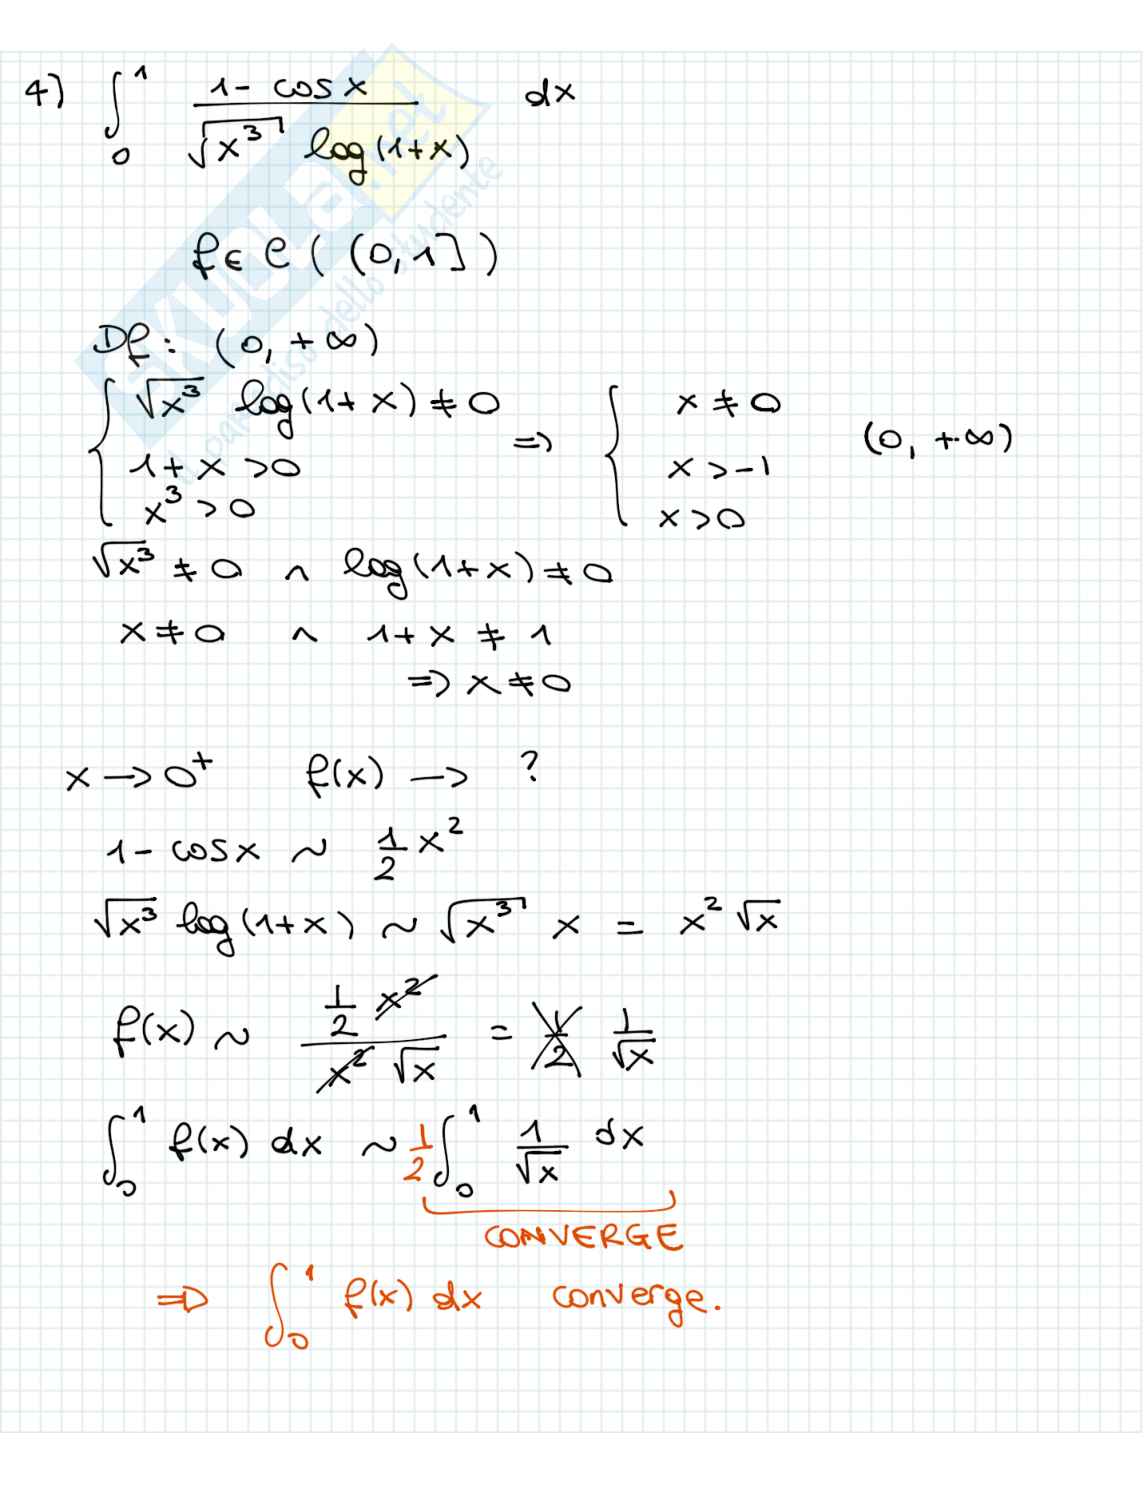 4) ∫₀¹ (1 - cos x) / (√x³ log(1+x)) dx
f ∈ C((0,1])
Df: (0, +∞)
{ √x³ log(1+x) ≠ 0 ⇒ { x ≠ 0 (0, +∞)
1+x >0 x > -1
x³ >0 x >0
√x³ ≠ 0 ∧ log(1+x) ≠ 0
x ≠ 0 ∧ 1+x ≠ 1
⇒ x ≠ 0
x → 0⁺ f(x) → ?
1 - cos x ~ 1/2 x²
√x³ log(1+x) ~ √x³ x = x² √x
f(x) ~ (1/2 x²) / (x² √x) = 1/2 1/√x
∫₀¹ f(x) dx ~ 1/2 ∫₀¹ 1/√x dx
CONVERGE
⇒ ∫₀¹ f(x) dx converge.